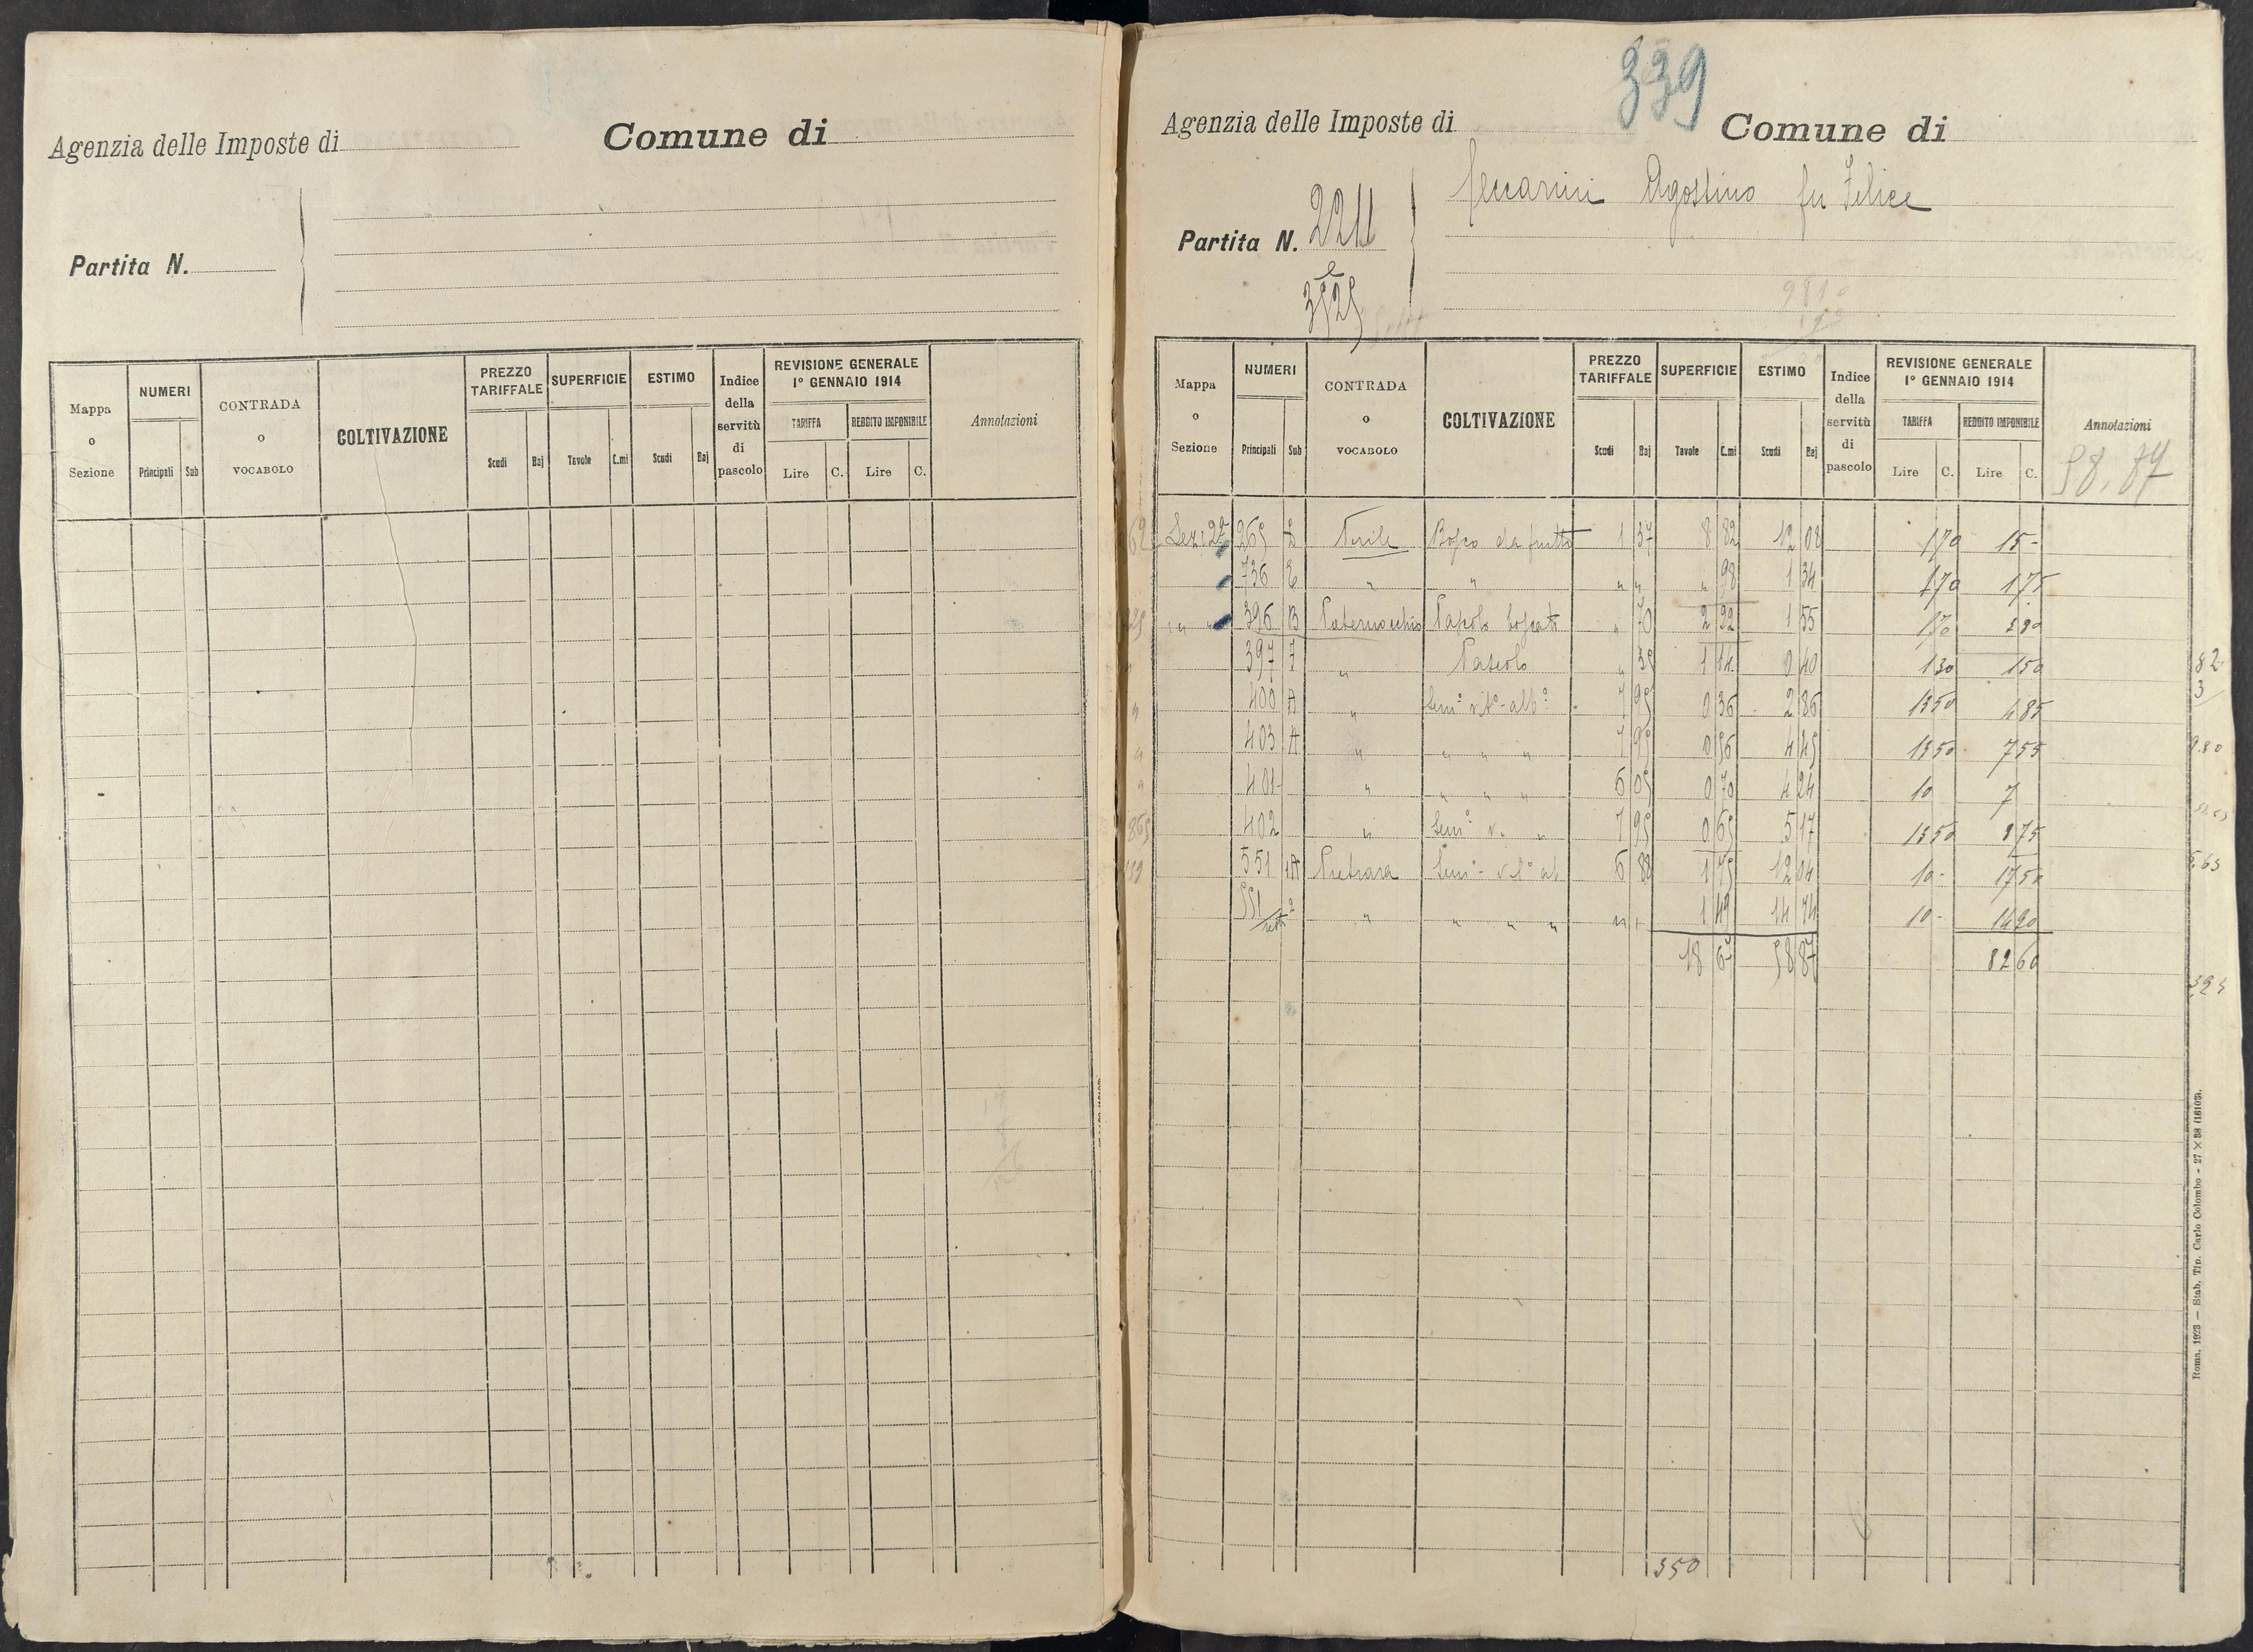 Agenzia delle Imposte di
Comune di
Partita N.
Mappa o Sezione
NUMERI
Principali
Sub
CONTRADA o VOCABOLO
COLTIVAZIONE
PREZZO TARIFFALE
Scudi
Baj
SUPERFICIE
Tavole
C.mi
ESTIMO
Scudi
Baj
Indice della servitù di pascolo
REVISIONE GENERALE 1º GENNAIO 1914
TARIFFA
Lire
C.
REDDITO IMPONIBILE
Lire
C.
Annotazioni
339
Agenzia delle Imposte di
Comune di
Agostino fu Felice
Partita N. 2211
e
3525
Mappa o Sezione
NUMERI
Principali
Sub
CONTRADA o VOCABOLO
COLTIVAZIONE
PREZZO TARIFFALE
Scudi
Baj
SUPERFICIE
Tavole
C.mi
ESTIMO
Scudi
Baj
Indice della servitù di pascolo
REVISIONE GENERALE 1º GENNAIO 1914
TARIFFA
Lire
C.
REDDITO IMPONIBILE
Lire
C.
Annotazioni
58,87
Sez: 2ª 265 Bosco da frutto 1 37 8 82 12 08 1 70 15 -
736 " " " " " 98 1 34 1 70 1 75
" " 396 B Pascolo boscato " 70 2 92 1 55 1 70
397 " Pascolo " 35 1 14 0 40 1 30 1 50
400 A " Sem.º vit.º alb.º 7 95 0 36 2 86 13 50 4 85
403 A " " " " 7 95 0 56 4 45 13 50 7 55
401 " " " " 6 05 0 70 4 24 10 7
402 " Sem.º v. " 7 95 0 65 5 17 13 50 8 75
551 1A Pietrara Sem.º vt.º al 6 88 1 75 12 04 10 - 17 50
551 2 " " " " " 1 49 14 74 10 - 14 90
18 67 58 87 82 60
350
Roma, 1923 — Stab. Tip. Carlo Colombo - 27 × 38 (16103).